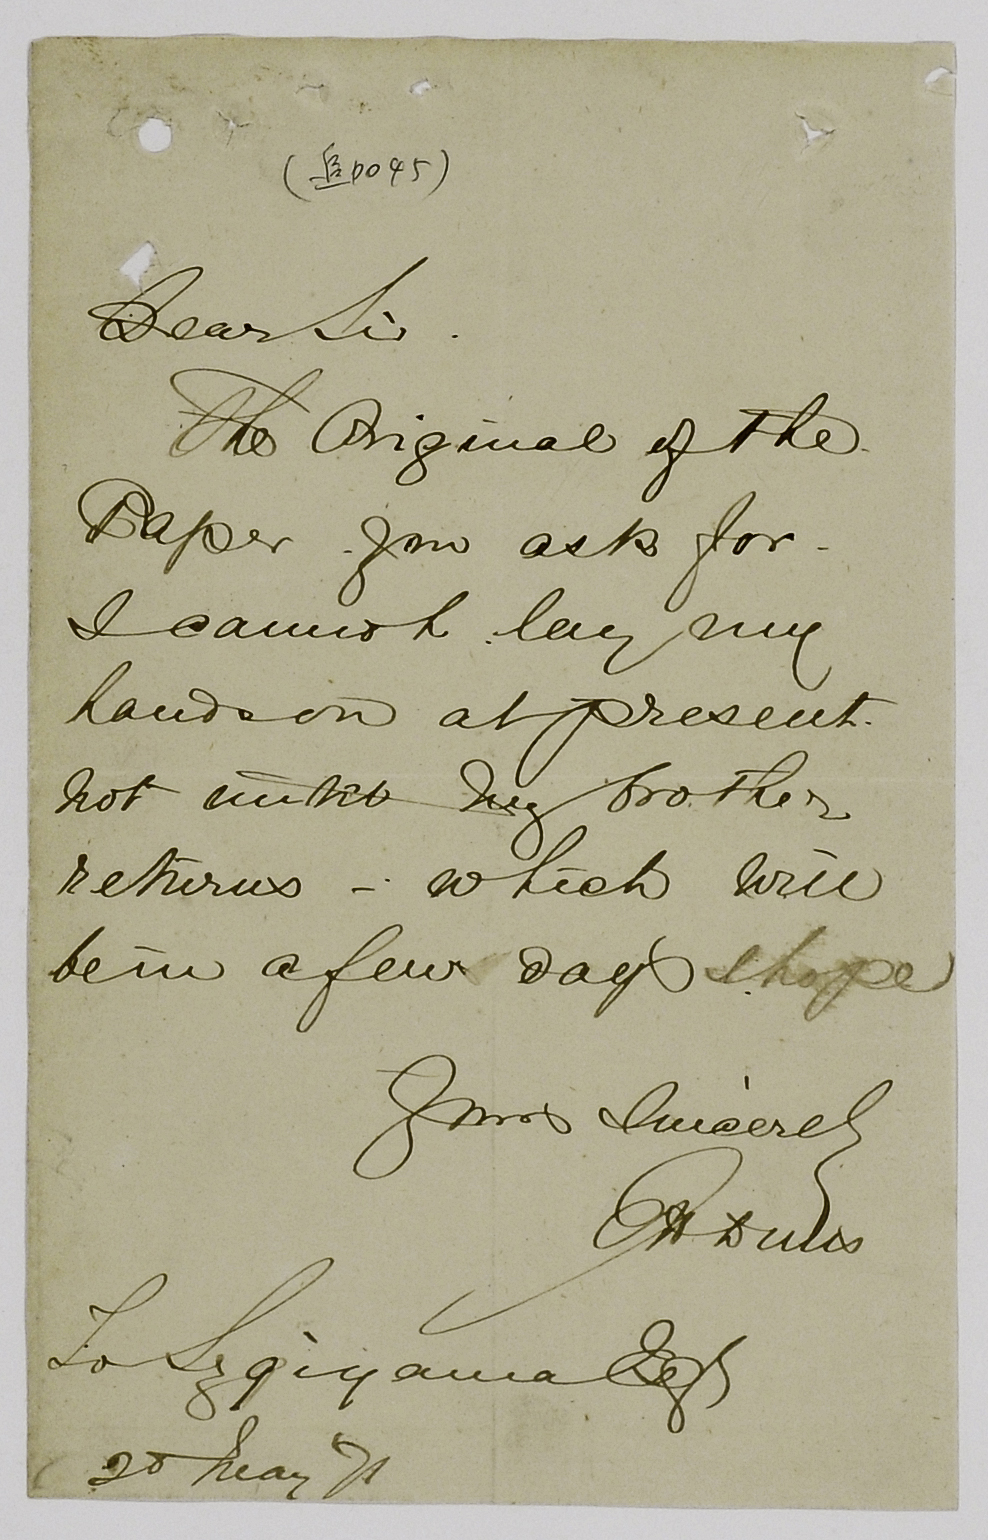 (0045)
Dear Sir.
The Original of the
Paper you ask for -
I cannot lay my
hands on at present.
not until my brother
returns - which will
be in a few days I hope
Yours Sincerely
To Szgiyama Esq
20 May 71